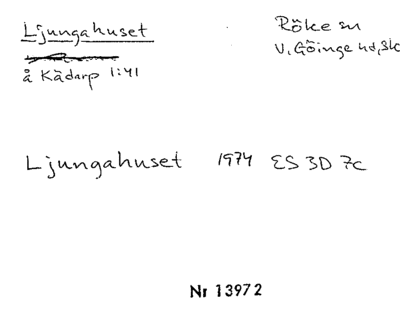 Ljungahuset
Röke sn
V. Göinge hd, Sk
å Kädarp 1:41
Ljungahuset 1974 ES 3D 7c
Nr 13972